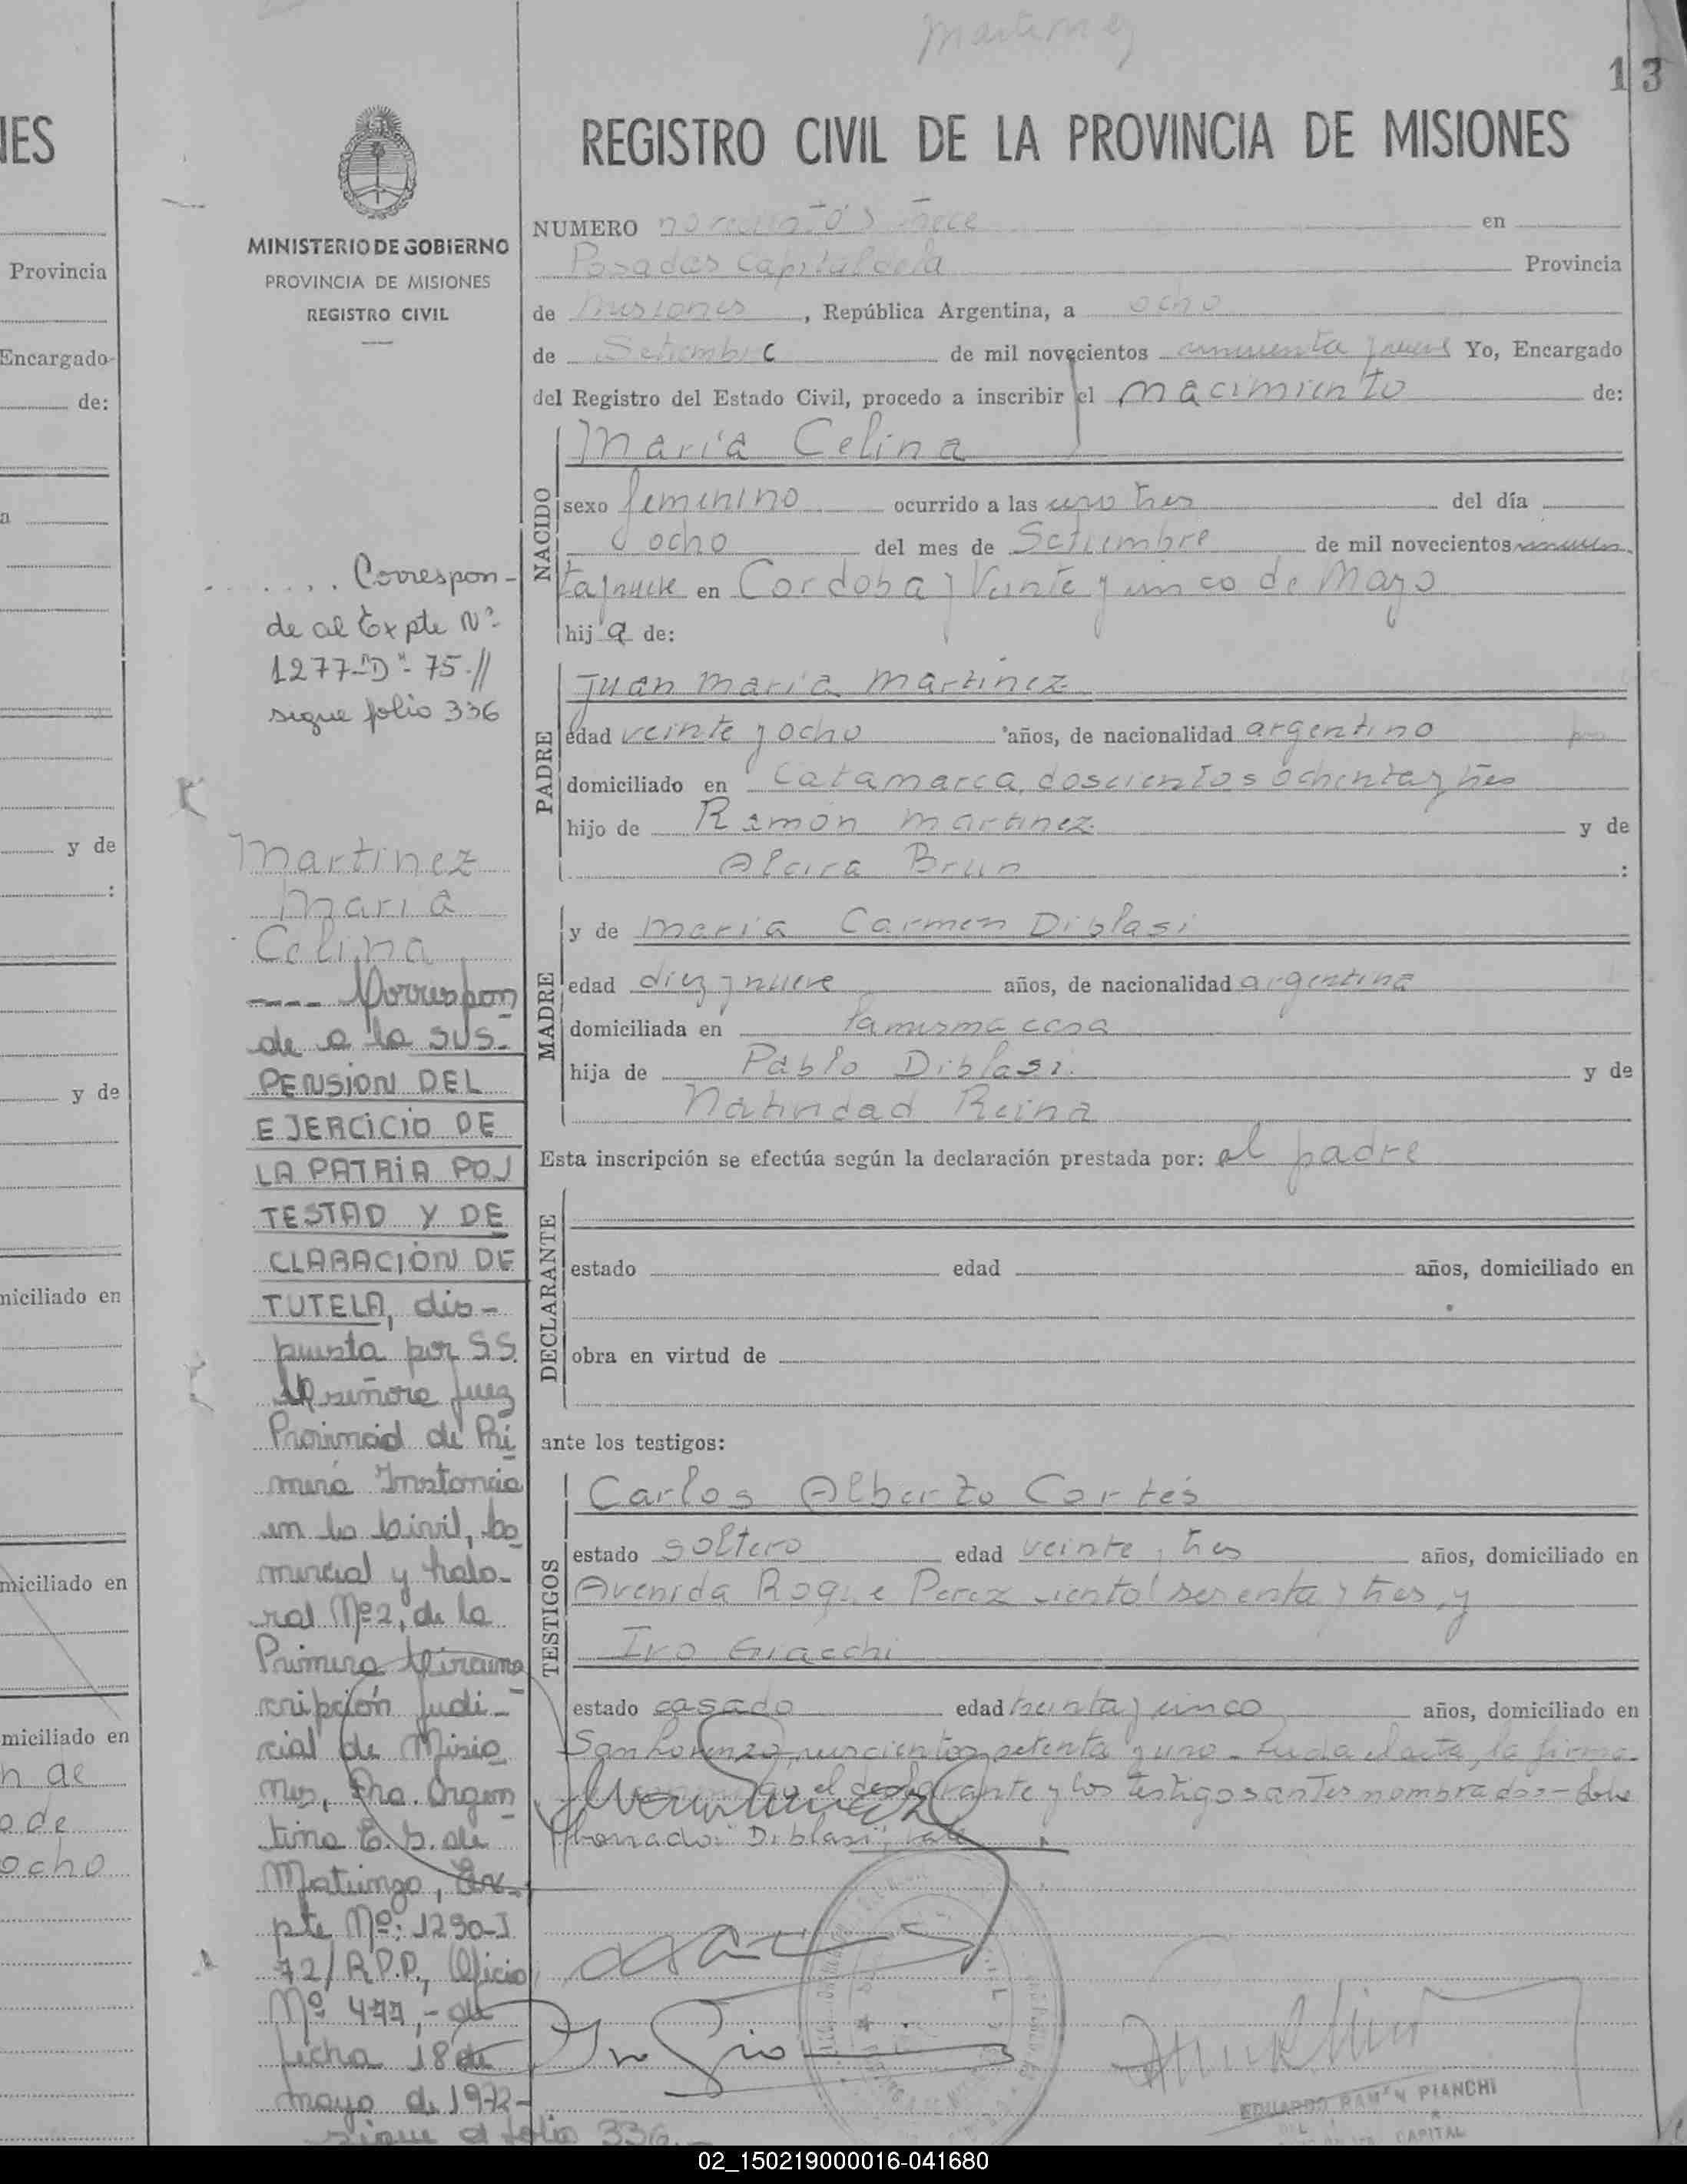 Martinez
13
IES
Provincia
Encargado
de:
a
y de
:
y de
miciliado en
miciliado en
miciliado en
n de
o de
ocho
MINISTERIO DE GOBIERNO
PROVINCIA DE MISIONES
REGISTRO CIVIL
Correspon-
de al Expte Nº
1277-"D"- 75.//
sigue folio 336
Martinez
Maria
Celina
---- Correspon
de a la SUS-
PENSION DEL
EJERCICIO DE
LA PATRIA PO
TESTAD Y DE
CLARACIÓN DE
TUTELA, dis-
puesta por SS.
señora Juez
Provincial de Pri
mera Instancia
en lo Civil, Co
mercial y Labo-
ral Nº2, de la
Primera Circuns
cripción Judi-
cial de Misio
nes, Rca. Argen
tina E. S. de
, Ex-
pte Nº: 1290-
72/ R.P.P., Oficio
Nº 477,- de
fecha 18 de
mayo de 1972-
sigue al folio 336.-
REGISTRO CIVIL DE LA PROVINCIA DE MISIONES
NUMERO novecientos trece en
Posadas Capital de la Provincia
de Misiones, República Argentina, a ocho
de Setiembre de mil novecientos cincuenta y nueve Yo, Encargado
del Registro del Estado Civil, procedo a inscribir el nacimiento de:
NACIDO
María Celina
sexo femenino ocurrido a las uno tres del día
ocho del mes de Setiembre de mil novecientos cincuen
ta y nueve en Cordoba y Veinte y cinco de Mayo
hija de:
PADRE
Juan María Martinez
edad veinte y ocho años, de nacionalidad argentino
domiciliado en Catamarca, doscientos ochenta y tres
hijo de Ramón Martinez y de
Alcira Brun :
MADRE
y de María Carmen Diblasi
edad diez y nueve años, de nacionalidad argentina
domiciliada en la misma casa
hija de Pablo Diblasi y de
Natividad Reina
Esta inscripción se efectúa según la declaración prestada por: el padre
DECLARANTE
estado edad años, domiciliado en
obra en virtud de
ante los testigos:
TESTIGOS
Carlos Alberto Cortés
estado soltero edad veinte y tres años, domiciliado en
Avenida Roque Perez ciento sesenta y tres, y
Ivo Giacchi
estado casado edad treinta y cinco años, domiciliado en
San Lorenzo, setenta y uno - Leida el acta, la firma
el declarante y los testigos antes nombrados - Sobre
borrado: "Diblasi", vale
EDUARDO RAMON PIANCHI
CAPITAL
02_150219000016-041680